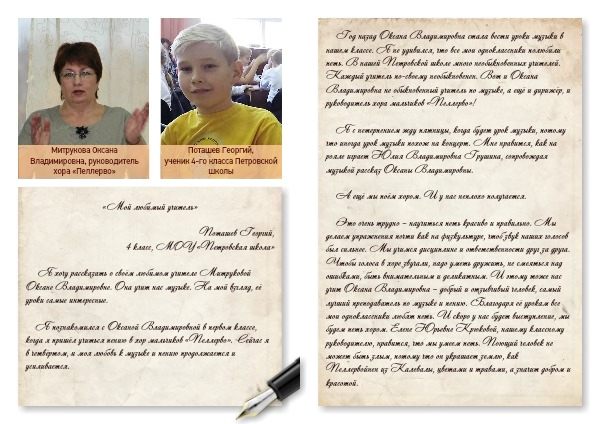 Митрукова Оксана
Владимировна, руководитель
хора «Пеллерво»
Поташев Георгий,
ученик 4-го класса Петровской
школы
«Мой любимый учитель»
Поташев Георгий,
4 класс, МОУ «Петровская школа»
Я хочу рассказать о своём любимом учителе Митруковой
Оксане Владимировне. Она учит нас музыке. На мой взгляд, её
уроки самые интересные.
Я познакомился с Оксаной Владимировной в первом классе,
когда я пришёл учиться пению в хор мальчиков «Пеллерво». Сейчас я
в четвёртом, и моя любовь к музыке и пению продолжается и
усиливается.
Год назад Оксана Владимировна стала вести уроки музыки в
нашем классе. Я не удивился, что все мои одноклассники полюбили
петь. В нашей Петровской школе много необыкновенных учителей.
Каждый учитель по-своему необыкновенен. Вот и Оксана
Владимировна не обыкновенный учитель по музыке, а ещё и дирижёр, и
руководитель хора мальчиков «Пеллерво»!
Я с нетерпением жду пятницы, когда будет урок музыки, потому
что иногда урок музыки похож на концерт. Мне нравится, как на
рояле играет Юлия Владимировна Грушина, сопровождая
музыкой рассказ Оксаны Владимировны.
А ещё мы поём хором. И у нас неплохо получается.
Это очень трудно – научиться петь красиво и правильно. Мы
делаем упражнения почти как на физкультуре, чтоб звук наших голосов
был сильнее. Мы учимся дисциплине и ответственности друг за друга.
Чтобы голоса в хоре звучали, надо уметь дружить, не смеяться над
ошибками, быть внимательным и деликатным. И этому тоже нас
учит Оксана Владимировна – добрый и отзывчивый человек, самый
лучший преподаватель по музыке и пению. Благодаря её урокам все
мои одноклассники любят петь. И скоро у нас будет выступление, мы
будем петь хором. Елене Юрьевне Крюковой, нашему классному
руководителю, нравится, что мы умеем петь. Поющий человек не
может быть злым, потому что он украшает землю, как
Пеллервойнен из Калевалы, цветами и травами, а значит добром и
красотой.